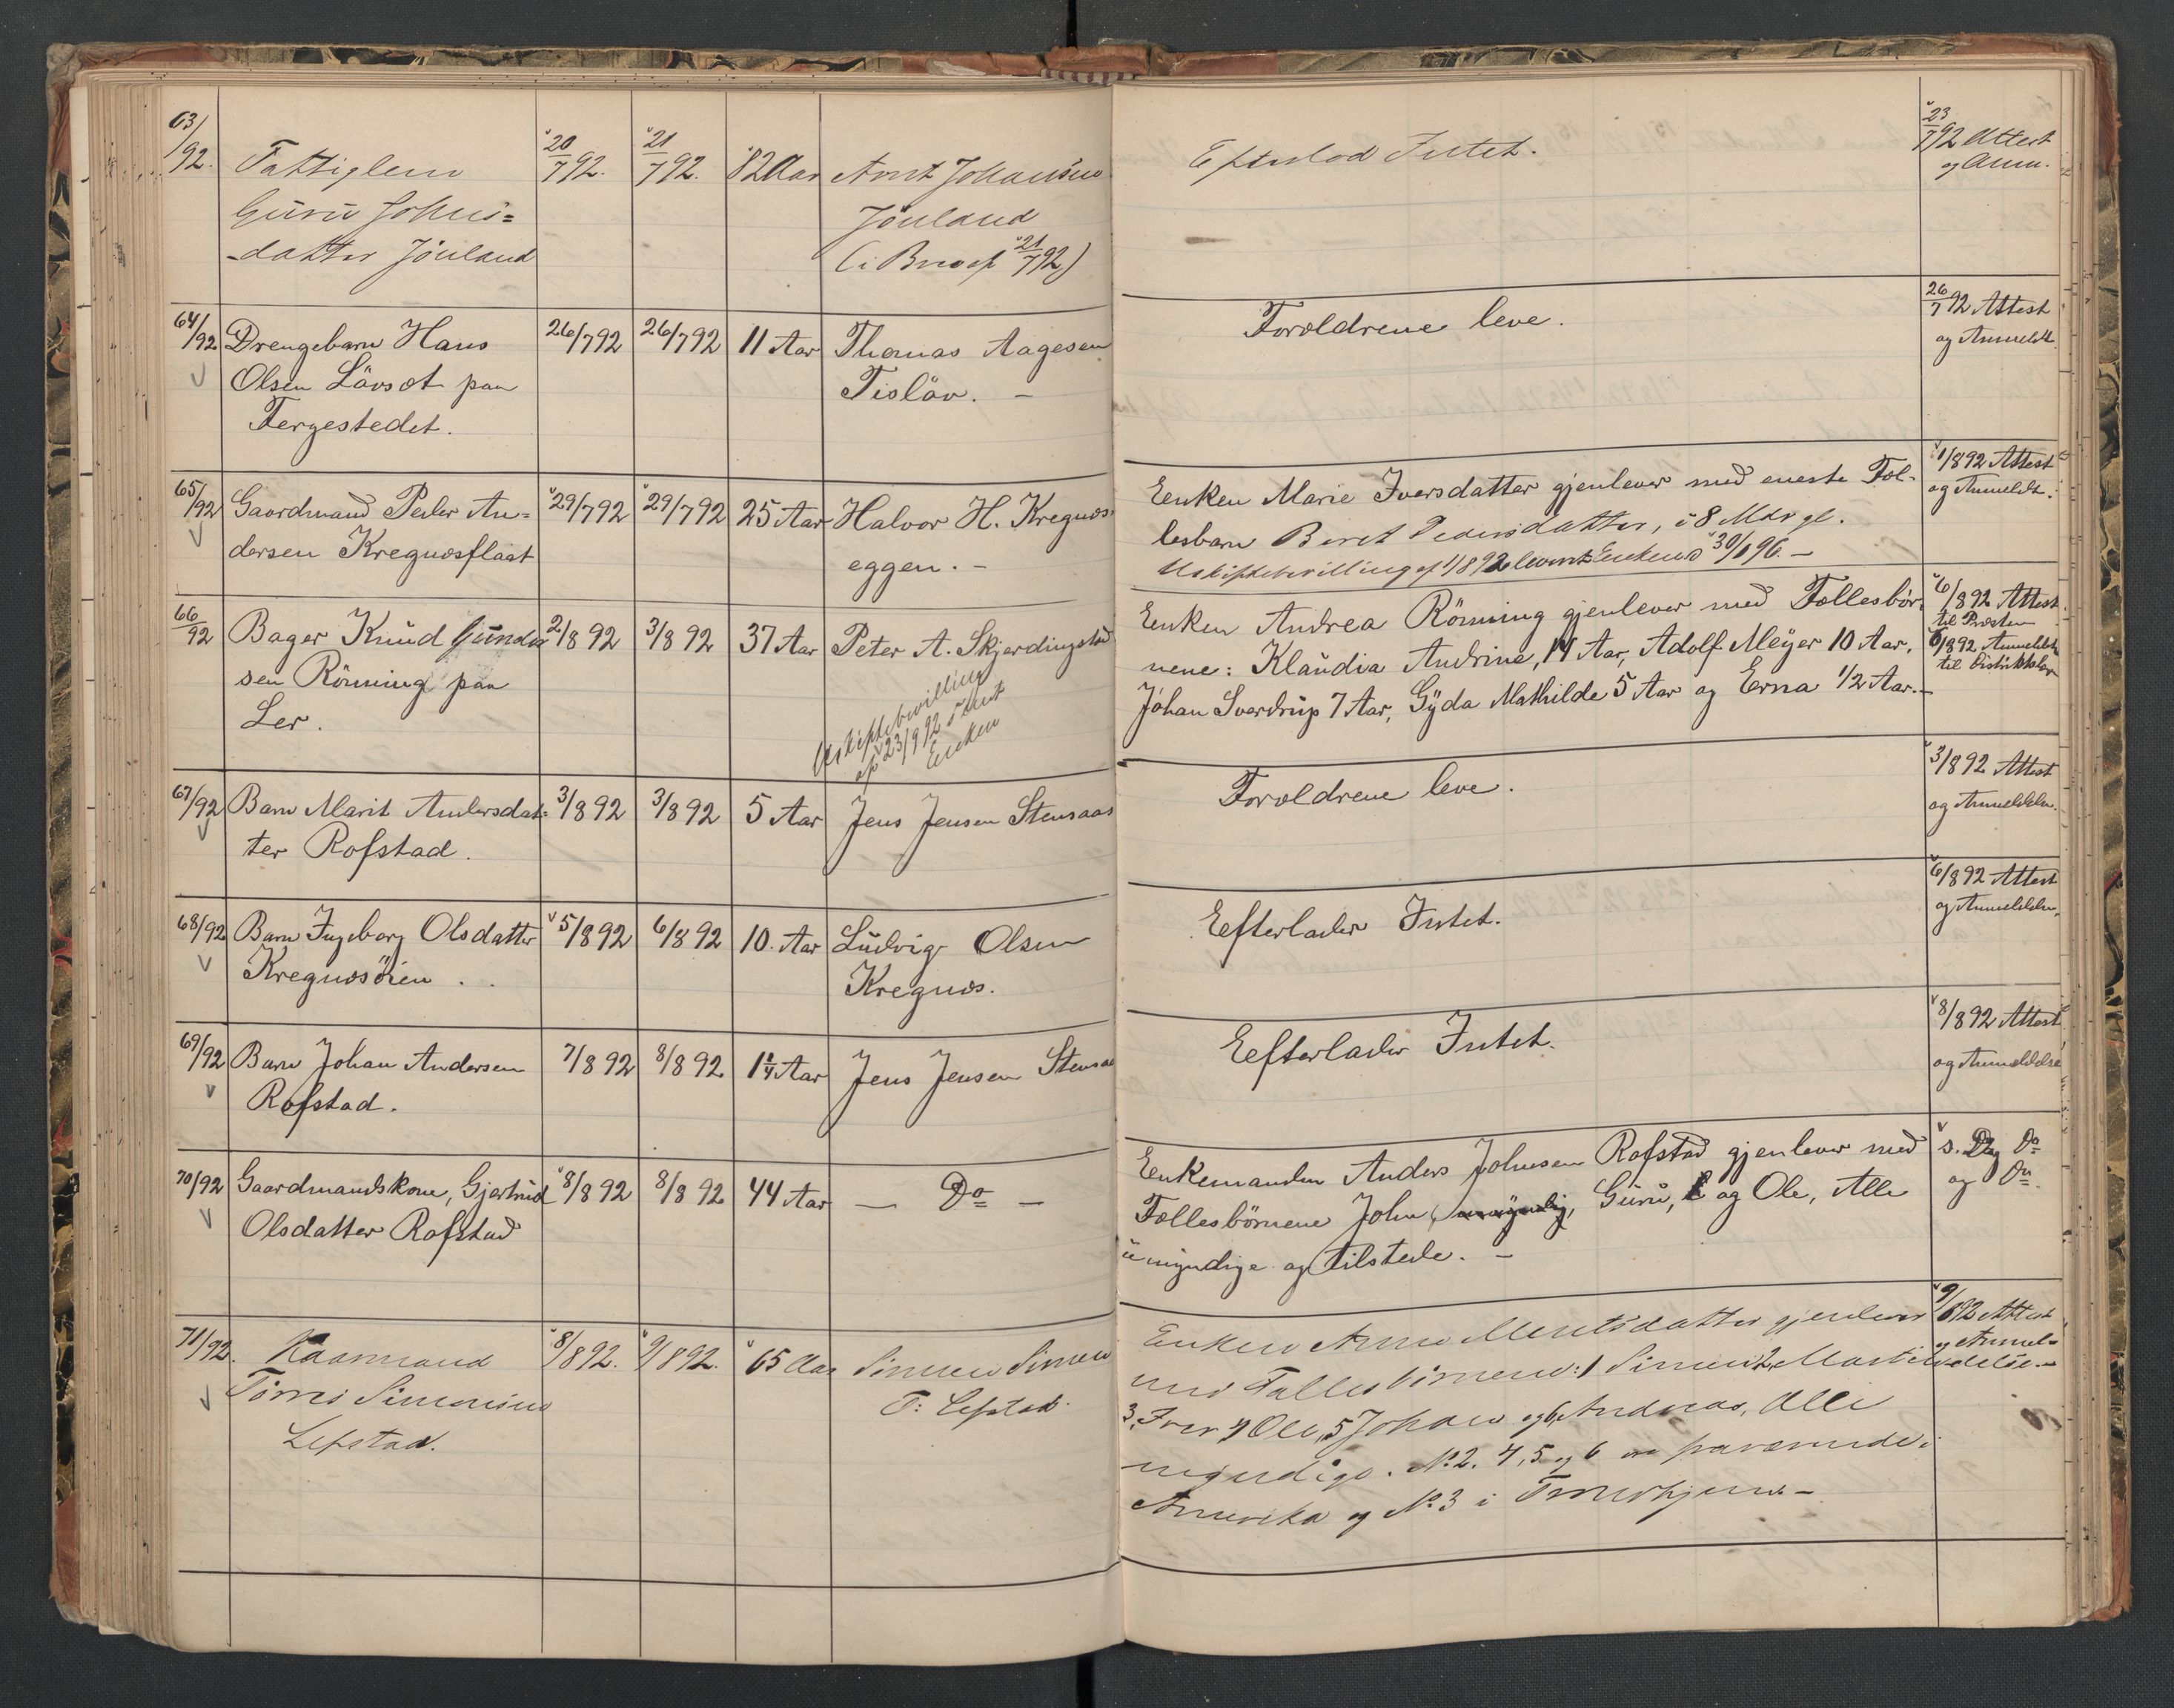 63/92. Fattiglem
Guru Johns=
-datter Jöuland
20/7 92. 21/7 92. 82 Aar
Arnt Johansen
Jöuland
(i Brev af 21/7 92)
Efterlod Intet.
23/7 92 Attest
og Anm.
64/92 Drengebarn Hans
Olsen Løvset paa
Fergestedet.
26/7 92 26/7 92 11 Aar
Thomas Aagesen
Tisløv. -
Forældrene leve.
26/7 92 Attest
og Anmeldt.
65/92 Gaardmand Peder An=
dersen Kregnæsflaat
29/7 92 29/7 92 25 Aar
Halvor H. Kregnæs
eggen. -
Enken Marie Iversdatter gjenlever med eneste Fæl-
lesbarn Beret Pedersdatter, 8 Mdr gl.
Uskiftebevilling af 1/8 92 levert Enken d 30/1 96. -
1/8 92 Attest
og Anmeldt.
66/92 Bager Knud Gunder
sen Rönning paa
Ler.
2/8 92 3/8 92 37 Aar
Peter A. Skjerdingstad
Uskiftebevilling
af 23/9 92 sendt
Enken
Enken Andrea Rönning gjenlever med Fællesbör
nene: Klaudia Andrine, 14 Aar, Adolf Meyer 10 Aar,
Johan Sverdrup 7 Aar, Gyda Mathilde 5 Aar og Erna 1/2 Aar. -
6/8 92 Attest
til Presten
6/8 92 Anmeldt
til Distriktslæ
67/92 Barn Marit Andersdat=
ter Rofstad.
3/8 92 3/8 92 5 Aar
Jens Jensen Stensaas
Forældrene leve.
3/8 92 Attest
og Anmeldelse.
68/92 Barn Ingeborg Olsdatter
Kregnæsöien . .
5/8 92 6/8 92 10. Aar
Ludvig Olsen
Kregnæs.
Eefterlader Intet.
6/8 92 Attest
og Anmeldelse.
69/92 Barn Johan Andersen
Rofstad.
7/8 92 8/8 92 1 1/4 Aar
Jens Jensen Stensaa
Eefterlader Intet.
8/8 92 Attest
og Anmeldelse
70/92 Gaardmandskone, Gjertrud
Olsdatter Rofstad
8/8 92 8/8 92 44 Aar
— Do —
Enkemanden Anders Johnsen Rofstad gjenlever med
Fællesbörnene John, Guru, og Ole, Alle
umyndige og tilstede. -
s. Dag Do
og Do
71/92. Kaarmand
Törris Simonsen
Lefstad.
8/8 92. 9/8 92. 65 Aar
Simen Simen
T: Lefstad.
Enken Anne Mentsdatter gjenlever
med Fællesbörnene: 1 Simen 2, Martin
3, Iver 4 Ole, 5 Johan og 6, Andreas, Alle
myndige. No 2. 4, 5 og 6 er fraværende i
Amerika og No 3 i Trondhjem. -
9/8 92 Attest
og Anmel-
delse. -